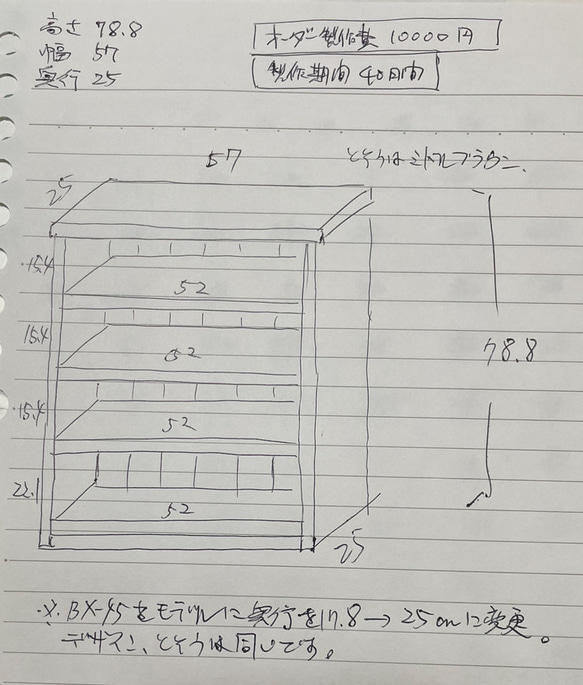 高さ 78.8
幅 57
奥行 25
オーダー製作費 10000円
製作期間 40日間
57
とそうはミドルブラウン.
25
15.4
52
15.4
52
78.8
15.4
52
22.1
52
25
※. BX-45をモデルに奥行を17.8→25cmに変更。
デザイン、とそうは同じです。